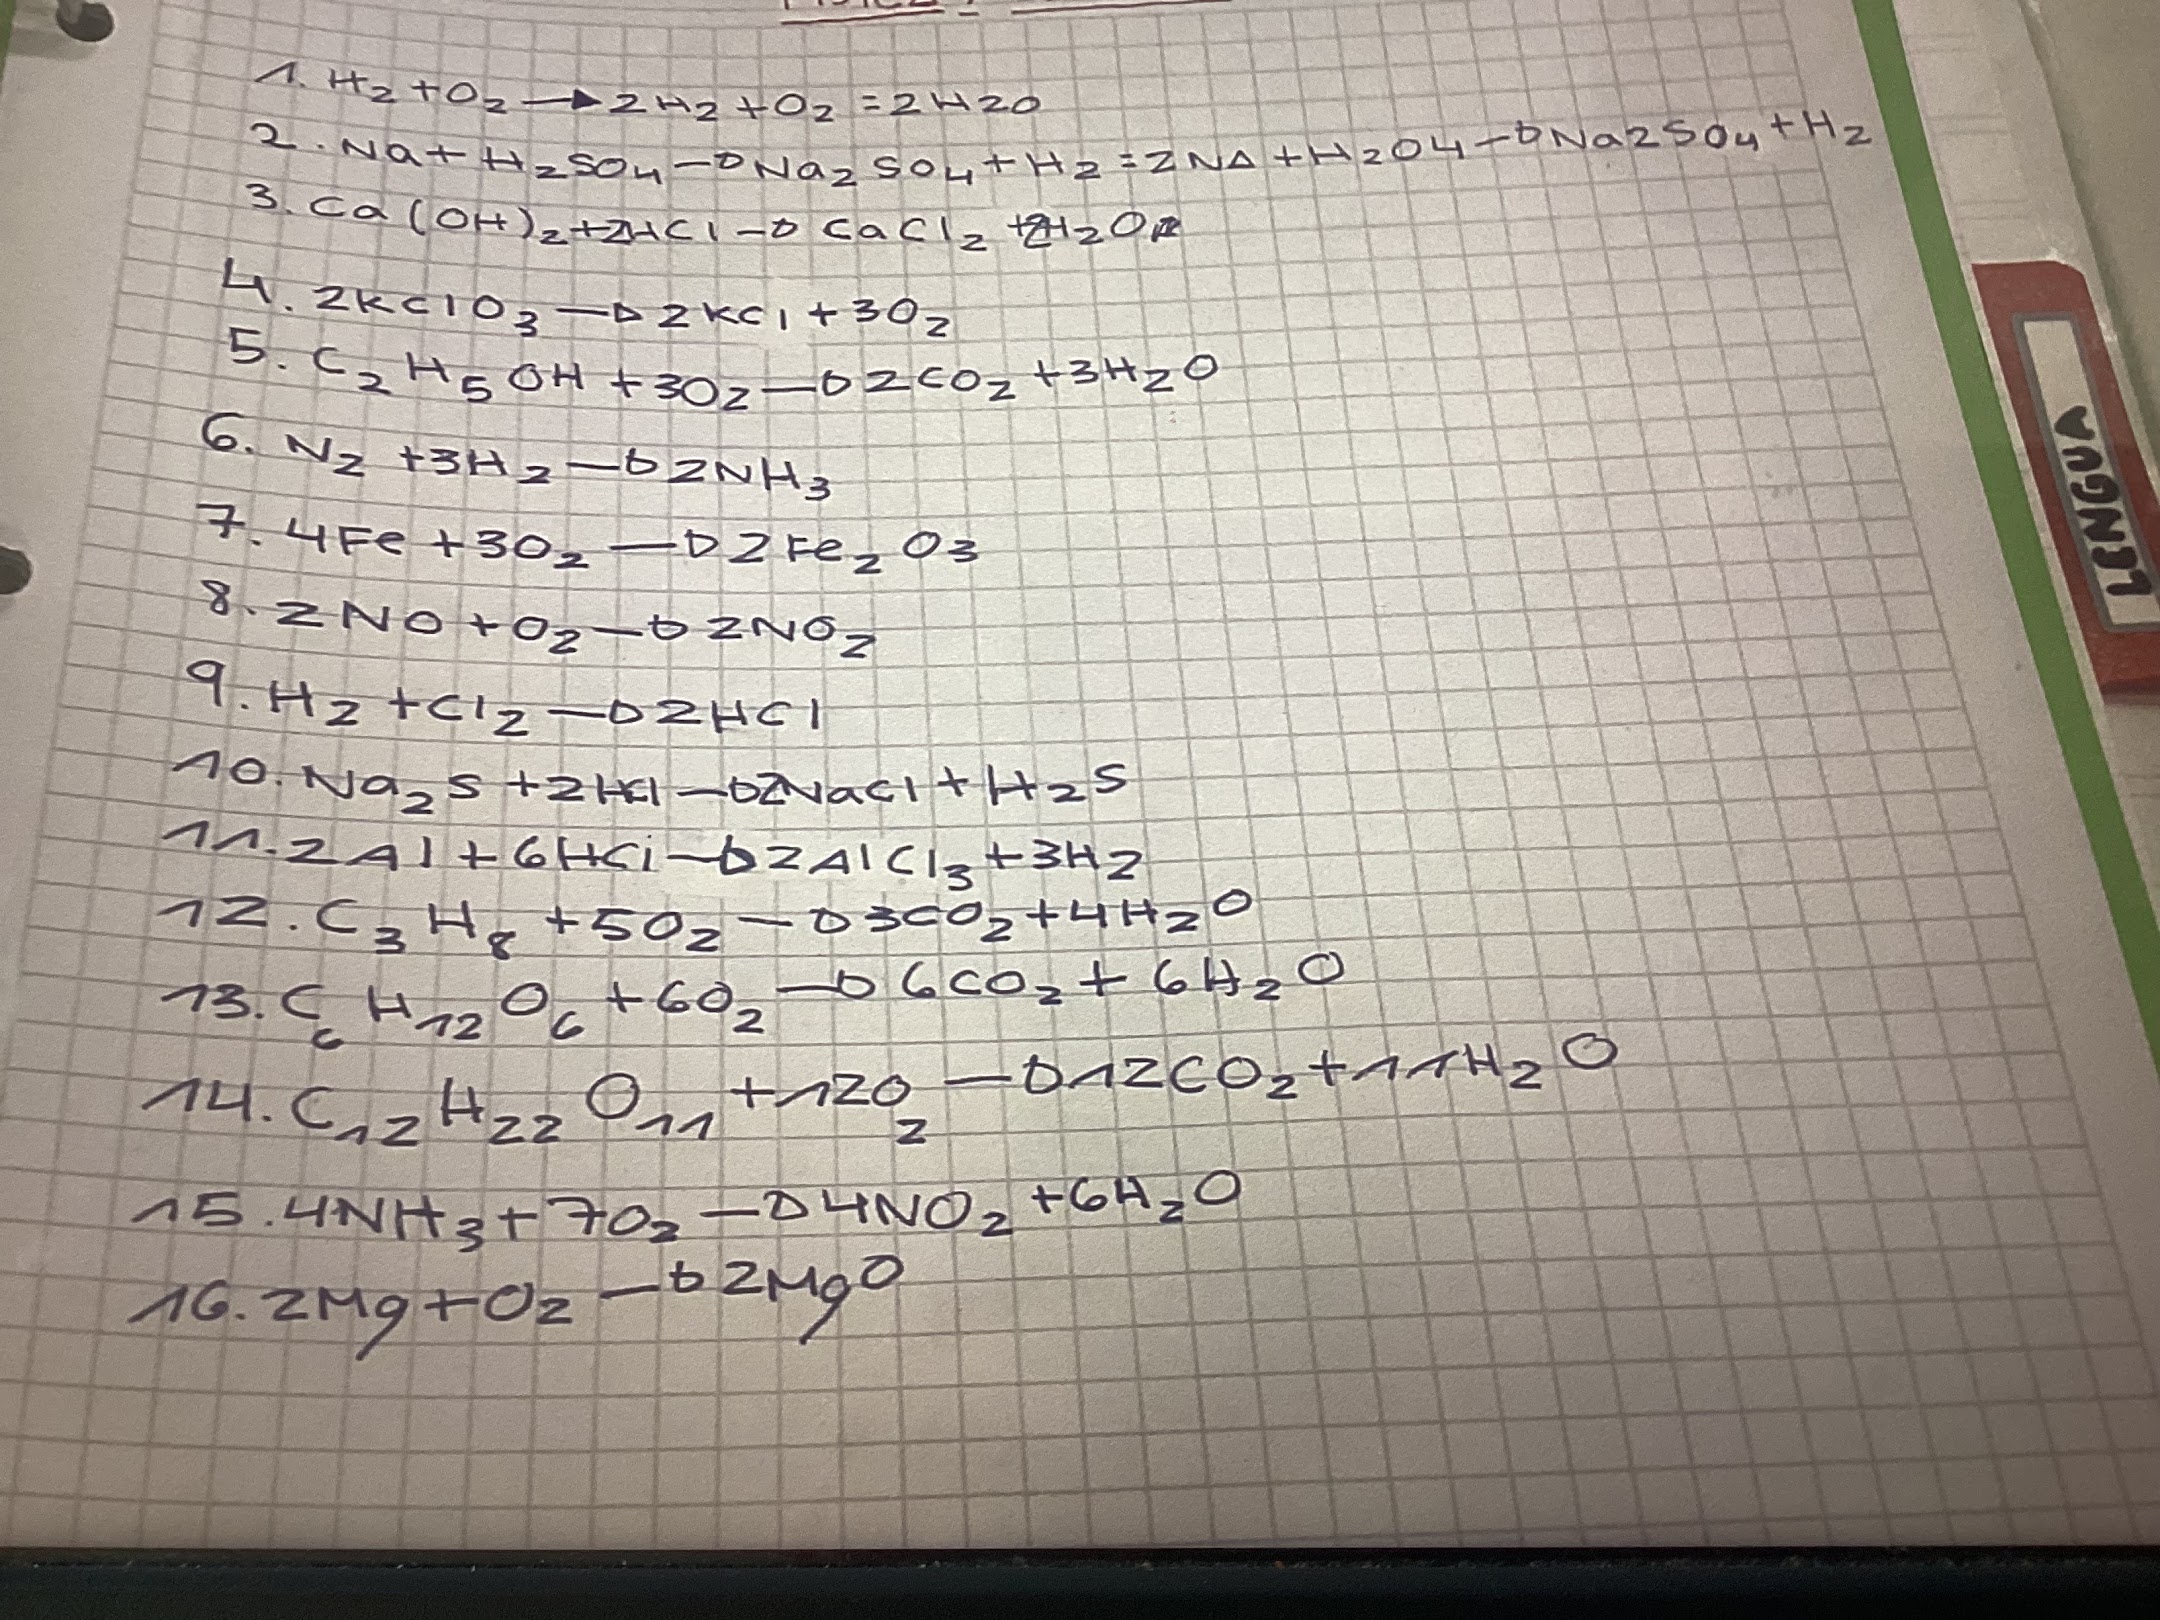 1. H₂ + O₂ → 2H₂ + O₂ = 2H2O
2. Na + H₂SO₄ → Na₂SO₄ + H₂ = 2NA + H₂O4 → Na2SO₄ + H₂
3. Ca(OH)₂ + 2HCl → CaCl₂ + 2H₂O
4. 2KClO₃ → 2KCl + 3O₂
5. C₂H₅OH + 3O₂ → 2CO₂ + 3H₂O
6. N₂ + 3H₂ → 2NH₃
7. 4Fe + 3O₂ → 2Fe₂O₃
8. 2NO + O₂ → 2NO₂
9. H₂ + Cl₂ → 2HCl
10. Na₂S + 2HCl → 2NaCl + H₂S
11. 2Al + 6HCl → 2AlCl₃ + 3H₂
12. C₃H₈ + 5O₂ → 3CO₂ + 4H₂O
13. C₆H₁₂O₆ + 6O₂ → 6CO₂ + 6H₂O
14. C₁₂H₂₂O₁₁ + 12O₂ → 12CO₂ + 11H₂O
15. 4NH₃ + 7O₂ → 4NO₂ + 6H₂O
16. 2Mg + O₂ → 2MgO
LENGUA